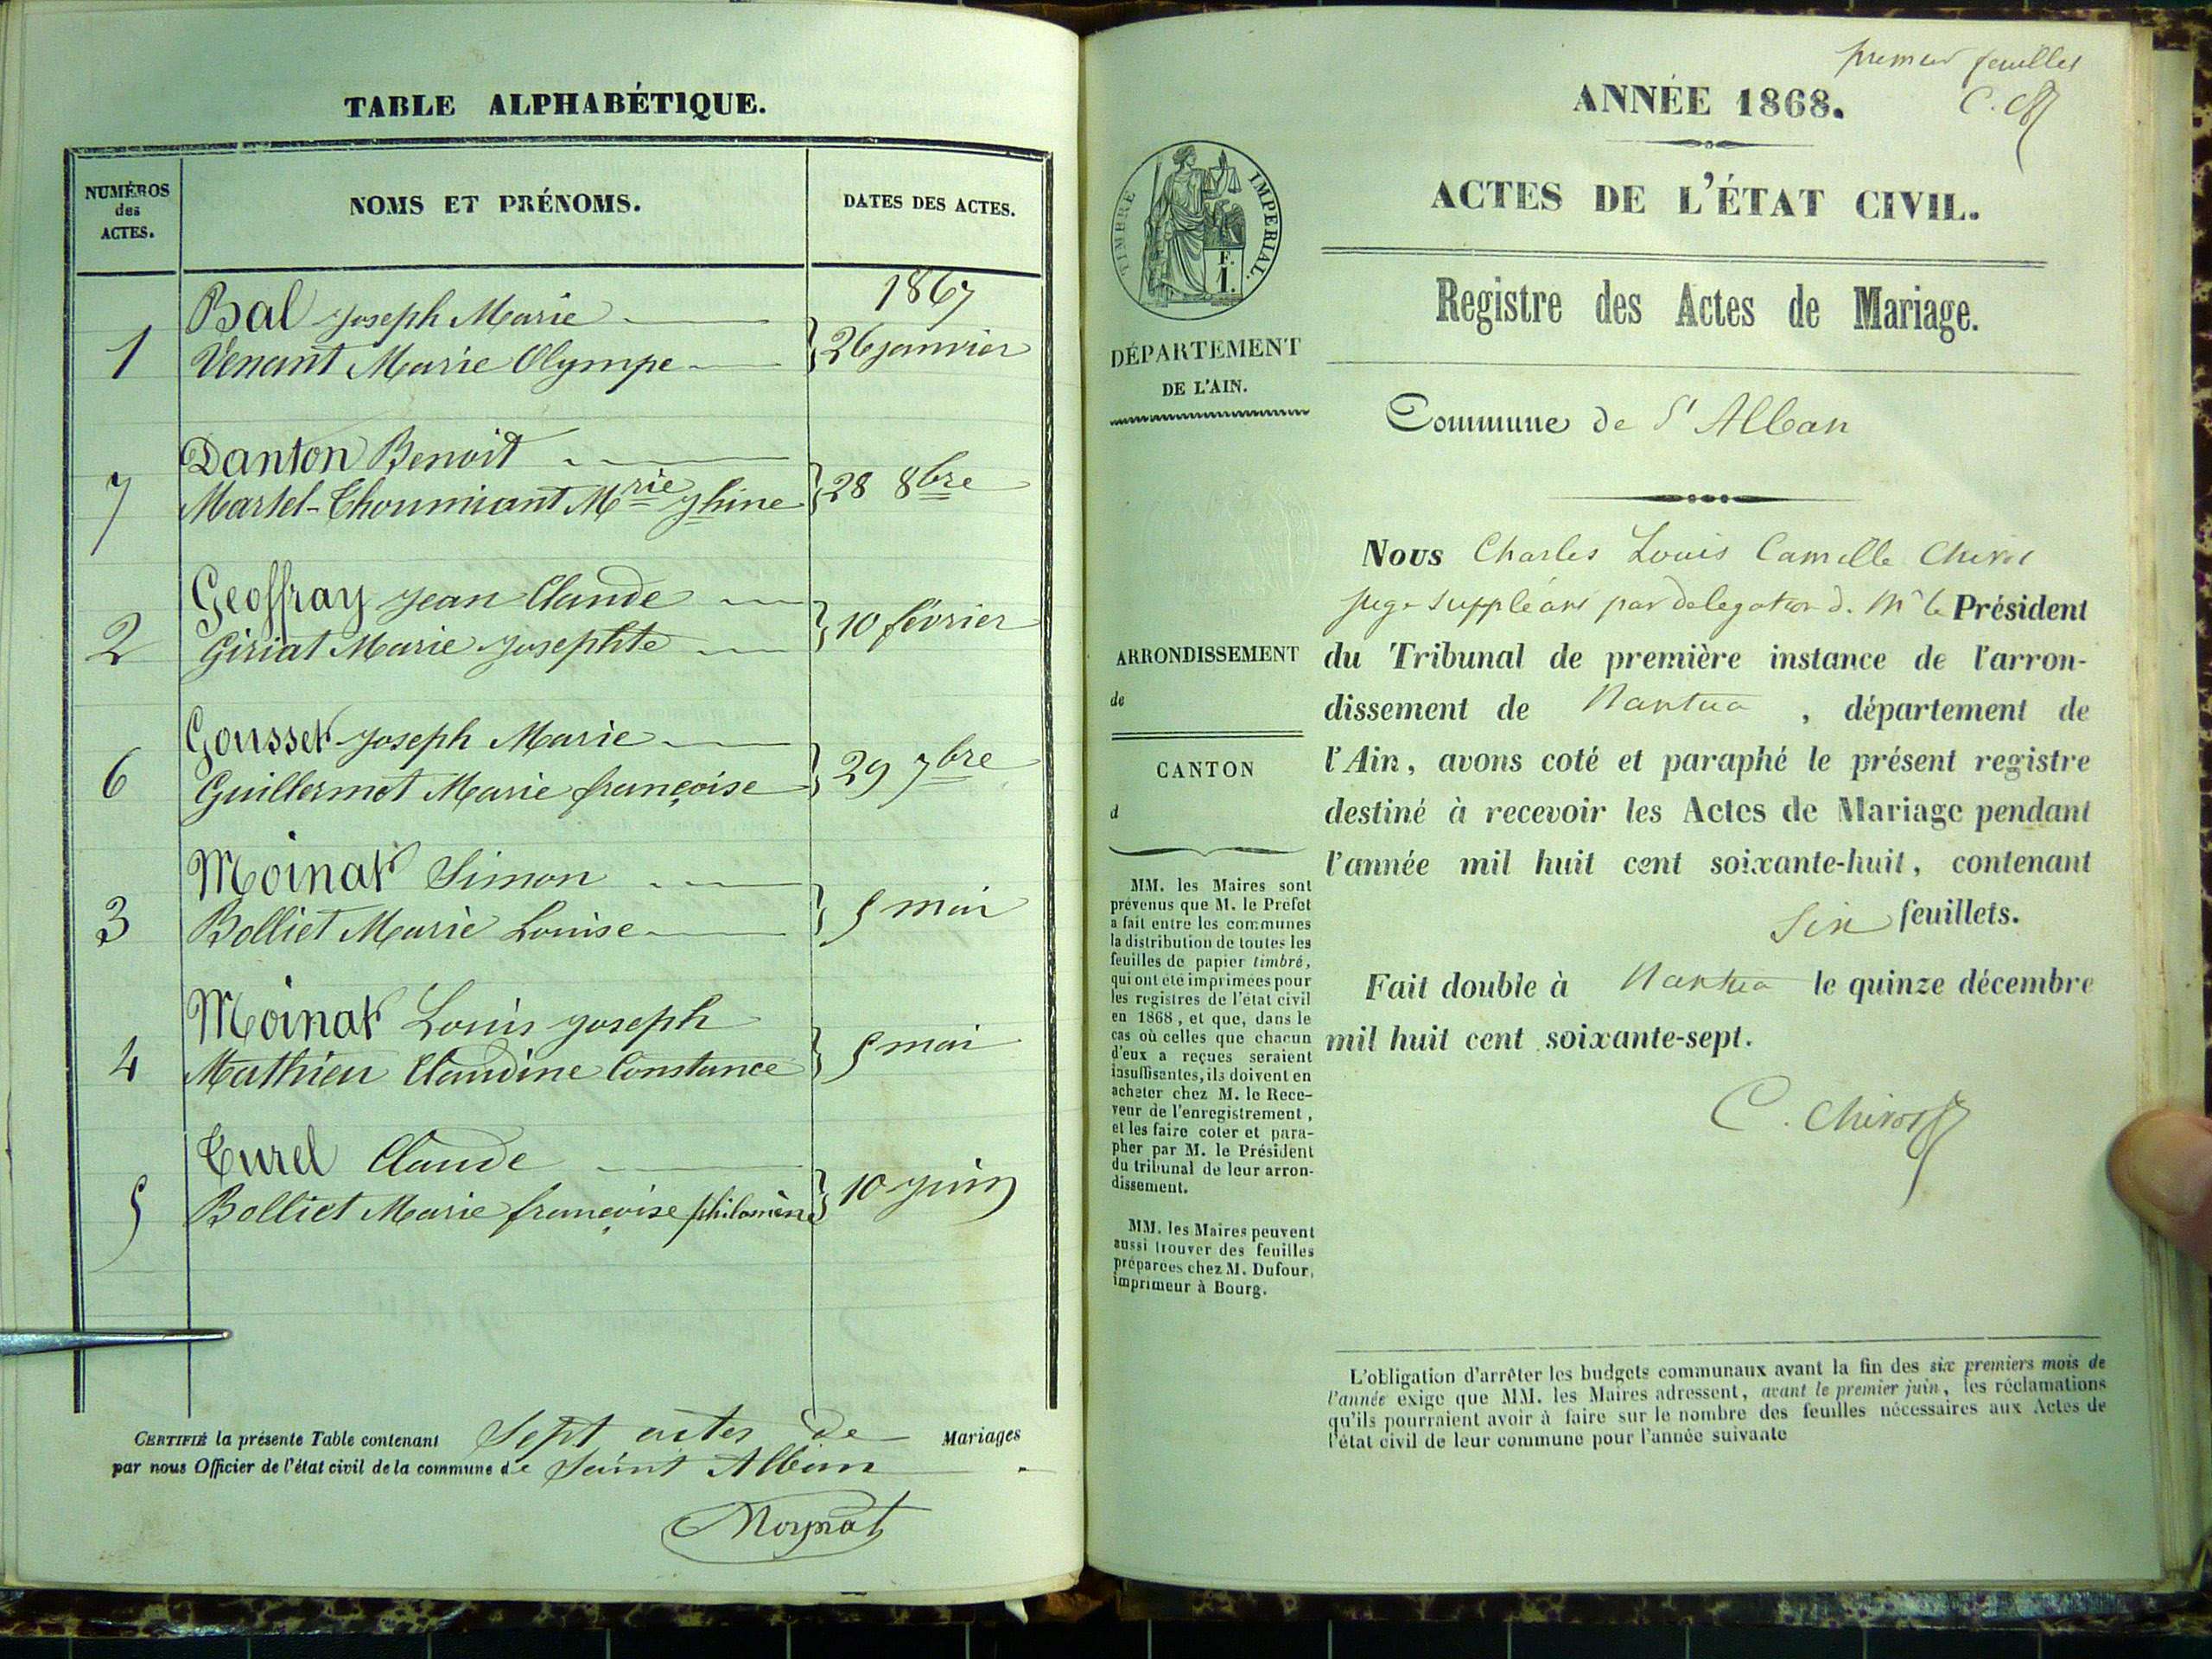 TABLE ALPHABÉTIQUE.
NUMÉROS
des
ACTES.
NOMS ET PRÉNOMS.
DATES DES ACTES.
1867
1 Bal Joseph Marie
Venant Marie Olympe } 26 janvier
7 Danton Benoit
Martel-Thoumiant Mrie Jphine } 28 8bre
2 Geoffray Jean Claude
Giriat Marie Josephte } 10 février
6 Gousset Joseph Marie
Guillermot Marie françoise } 29 7bre
3 Moinat Simon
Bolliet Marie Louise } 5 mai
4 Moinat Louis Joseph
Mathieu Claudine Constance } 5 mai
5 Turel Claude
Bolliet Marie françoise philomène } 10 juin
CERTIFIÉ la présente Table contenant Sept actes de Mariages
par nous Officier de l'état civil de la commune de Saint Alban
Moynat
premier feuillet
C. Ch
ANNÉE 1868.
ACTES DE L'ÉTAT CIVIL.
TIMBRE IMPERIAL.
F.
1.
Registre des Actes de Mariage.
DÉPARTEMENT
DE L'AIN.
Commune de St Alban
Nous Charles Louis Camille Chivot
juge suppléant par delegation d. Mr le Président
du Tribunal de première instance de l'arron-
dissement de Nantua, département de
l'Ain, avons coté et paraphé le présent registre
destiné à recevoir les Actes de Mariage pendant
l'année mil huit cent soixante-huit, contenant
Six feuillets.
Fait double à Nantua le quinze décembre
mil huit cent soixante-sept.
C. Chivot
ARRONDISSEMENT
de
CANTON
d
MM. les Maires sont
prévenus que M. le Préfet
a fait entre les communes
la distribution de toutes les
feuilles de papier timbré,
qui ont été imprimées pour
les registres de l'état civil
en 1868, et que, dans le
cas où celles que chacun
d'eux a reçues seraient
insuffisantes, ils doivent en
acheter chez M. le Rece-
veur de l'enregistrement,
et les faire coter et para-
pher par M. le Président
du tribunal de leur arron-
dissement.
MM. les Maires peuvent
aussi trouver des feuilles
préparées chez M. Dufour,
imprimeur à Bourg.
L'obligation d'arrêter les budgets communaux avant la fin des six premiers mois de
l'année exige que MM. les Maires adressent, avant le premier juin, les réclamations
qu'ils pourraient avoir à faire sur le nombre des feuilles nécessaires aux Actes de
l'état civil de leur commune pour l'année suivante